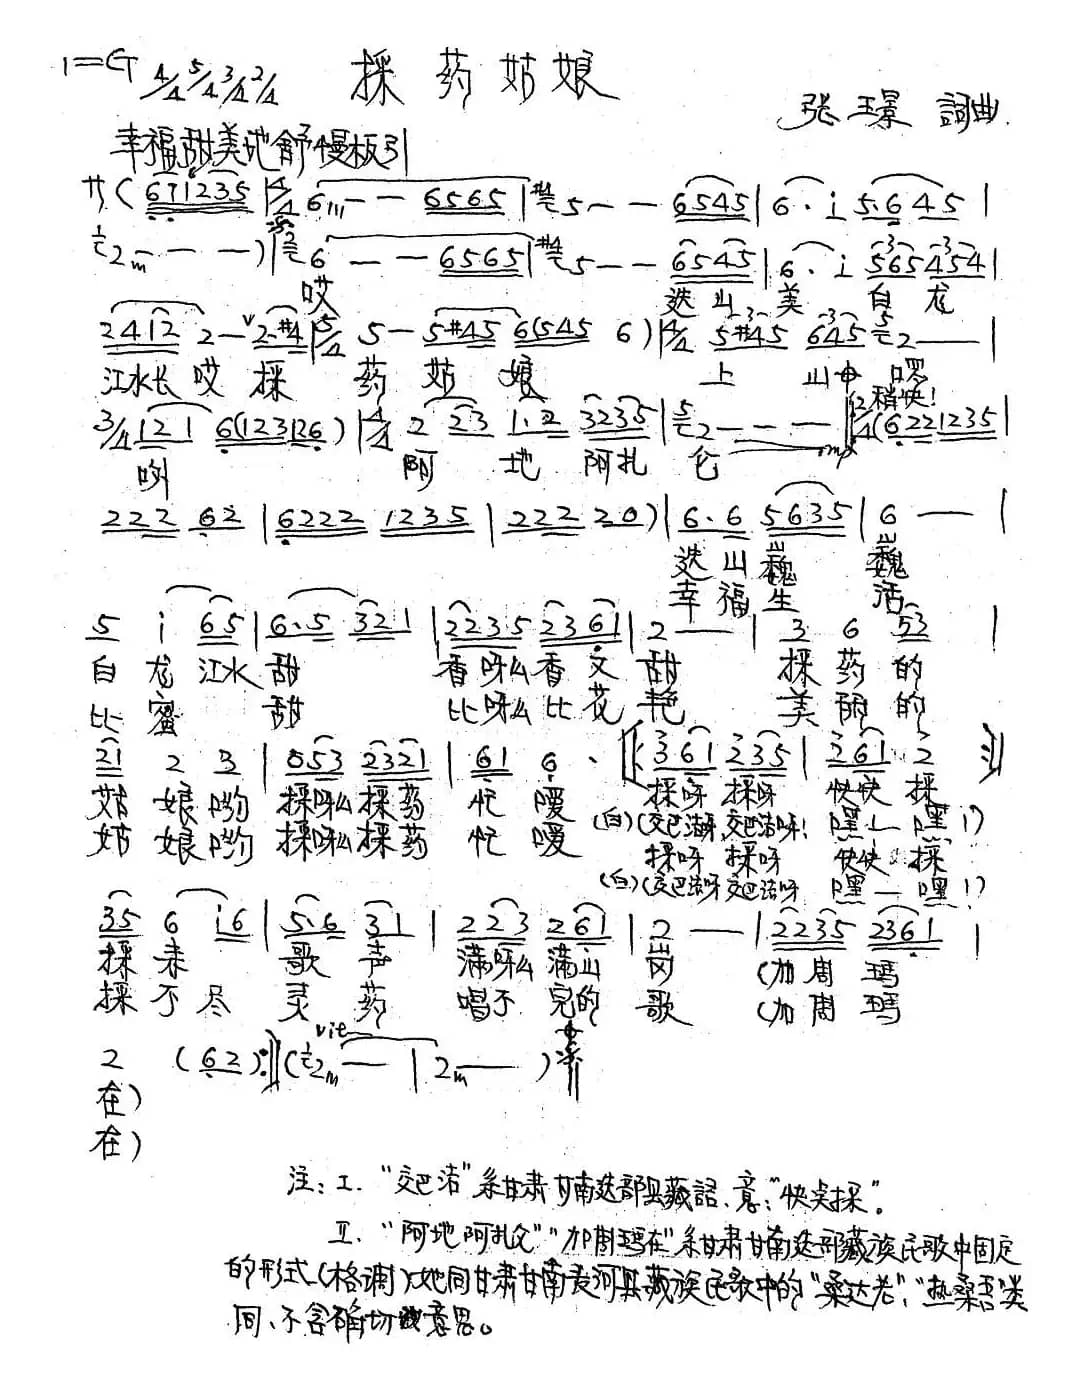 1=G 4/4 5/4 3/4 2/4 採药姑娘
张玉景 詞曲
幸福甜美地 舒慢板引
サ( 671235 | 4/4 6 — — 6565 | 5 — — 6545 | 6 · i 5.645 |
2 — — —) | 6 — — 6565 | 5 — — 6545 | 6 · i 565 454 |
哎 迭山美 白龙
2412 2 — 2·#4 | 5/4 5 — 5#45 6(545 6) | 4/4 5#45 645 2 — — |
江水长哎 採 药 姑 娘 上 山中 啰
稍快!
3/4 121 6(123126) | 4/4 2 23 1.2 3235 | 2 — — — | 2/4 (6221235 |
哟 阿 地 阿扎 仑
222 62 | 6222 1235 | 222 20) | 6·6 5635 | 6 — — |
迭山巍 巍
幸福生 活
5 i 65 | 6.5 321 | 2235 2361 | 2 — — | 3 6 53 |
白 龙 江水 甜 香呀么香又 甜 採 药 的
比 蜜 甜 比呀么比花 艳 美 丽 的
21 2 3 | 053 2321 | 61 6 · 361 235 | 261 2
姑 娘 哟 採呀么採药 忙 嗳 採呀 採呀 快快 採
姑 娘 哟 採呀么採药 忙 嗳 (白)(交巴洁呀,交巴洁呀! 嘿! — 嘿!)
採呀 採呀 快快 採
(白)(交巴洁呀交巴洁呀 嘿 — 嘿!)
35 6 i6 | 5.6 31 | 223 261 | 2 — — | 2235 2361 |
採来 歌 声 满呀么满山 岗 (加周 玛
採不尽 灵 药 唱不 完的 歌 (加周 玛
2 (62) :‖ (2 — — | 2 — — )
在)
在)
注: I. "交巴洁"系甘肃甘南迭部县藏語,意:"快点採"。
II. "阿地阿扎仑""加周玛在"系甘肃甘南迭部藏族民歌中固定
的形式(格调)她同甘肃甘南夏河县藏族民歌中的"桑达老"、"热桑吾"类
同、不含确切的意思。